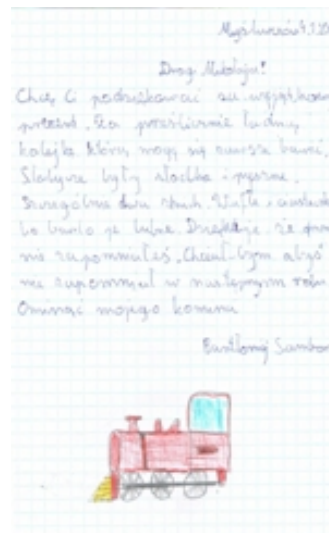 Drogi Mikołaju!
Chcę Ci podziękować za wyjątkowy
prezent. Za prześlicznie ładną
kolejkę którą mogę się zawsze bawić.
Słodycze były słodkie i pyszne.
Szczególnie dwa
bo bardzo je lubię. Dziękuję, że
nie zapomniałeś. Chciał-bym abyś
nie zapomniał w następnym roku
Ominąć mojego komina
Bartłomiej